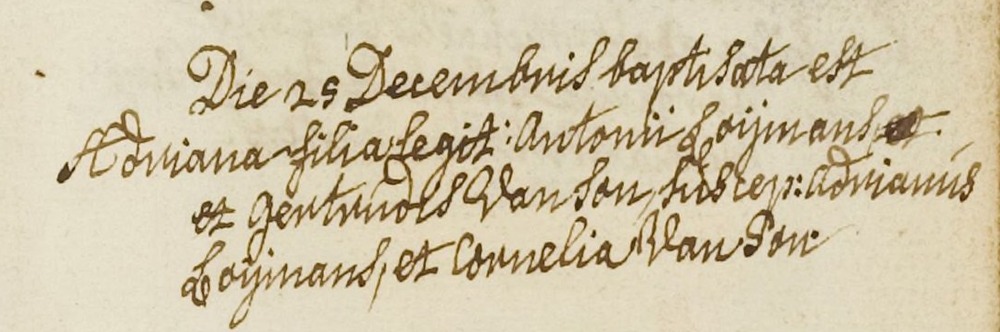 Die 25 Decembris baptisata est
Adriana filia legit: Antonii Loijmans et
et Gertrudis Van Son, suscep: Adrianus
Loijmans, et Cornelia Van Son